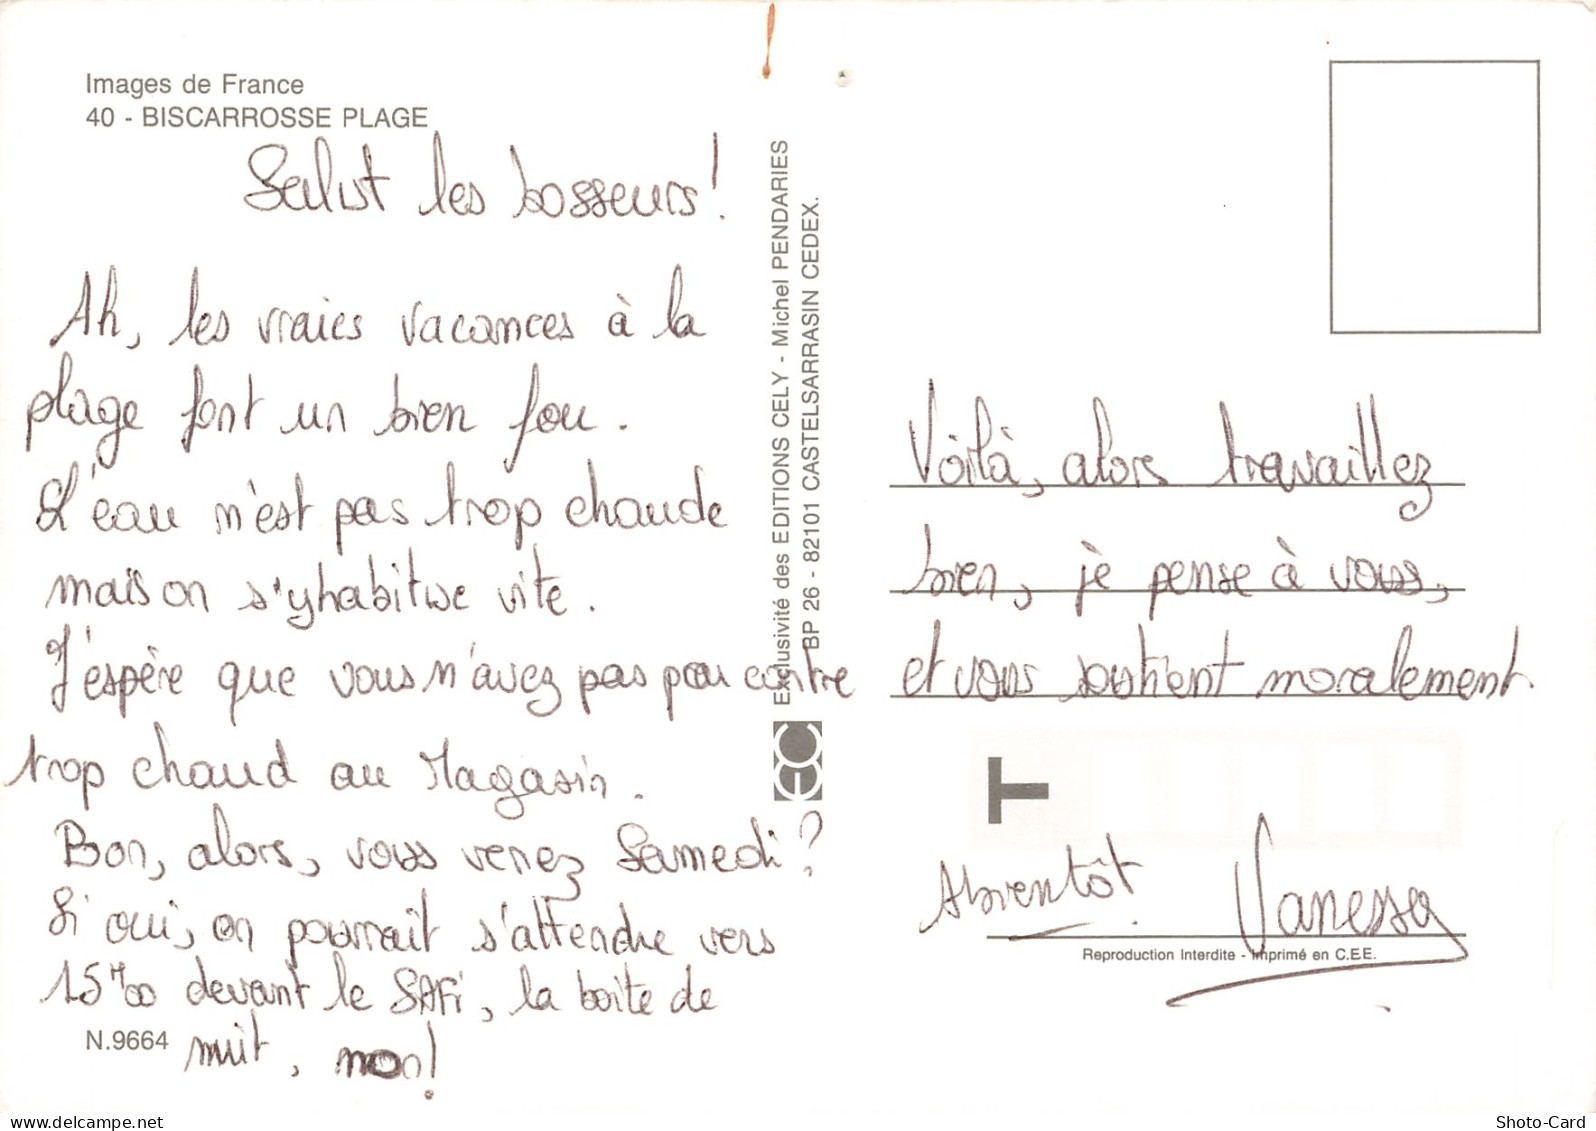 Images de France
40 - BISCARROSSE PLAGE
Salut les bosseurs!
Ah, les vraies vacances à la
plage font un bien fou.
L'eau n'est pas trop chaude
mais on s'y habitue vite.
J'espère que vous n'avez pas par contre
trop chaud au Magasin.
Bon, alors, vous venez Samedi?
Si oui, on pourrait s'attendre vers
15H00 devant le SAFi, la boite de
nuit, non!
N.9664
Exclusivité des EDITIONS CELY - Michel PENDARIES
BP 26 - 82101 CASTELSARRASIN CEDEX.
EC
Voilà, alors travaillez
bien, je pense à vous,
et vous soutient moralement.
T
Abientôt Vanessa
Reproduction Interdite - Imprimé en C.E.E.
delcampe.net
Shoto-Card